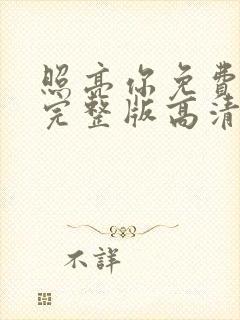 照亮你免費
完整版高清
不詳